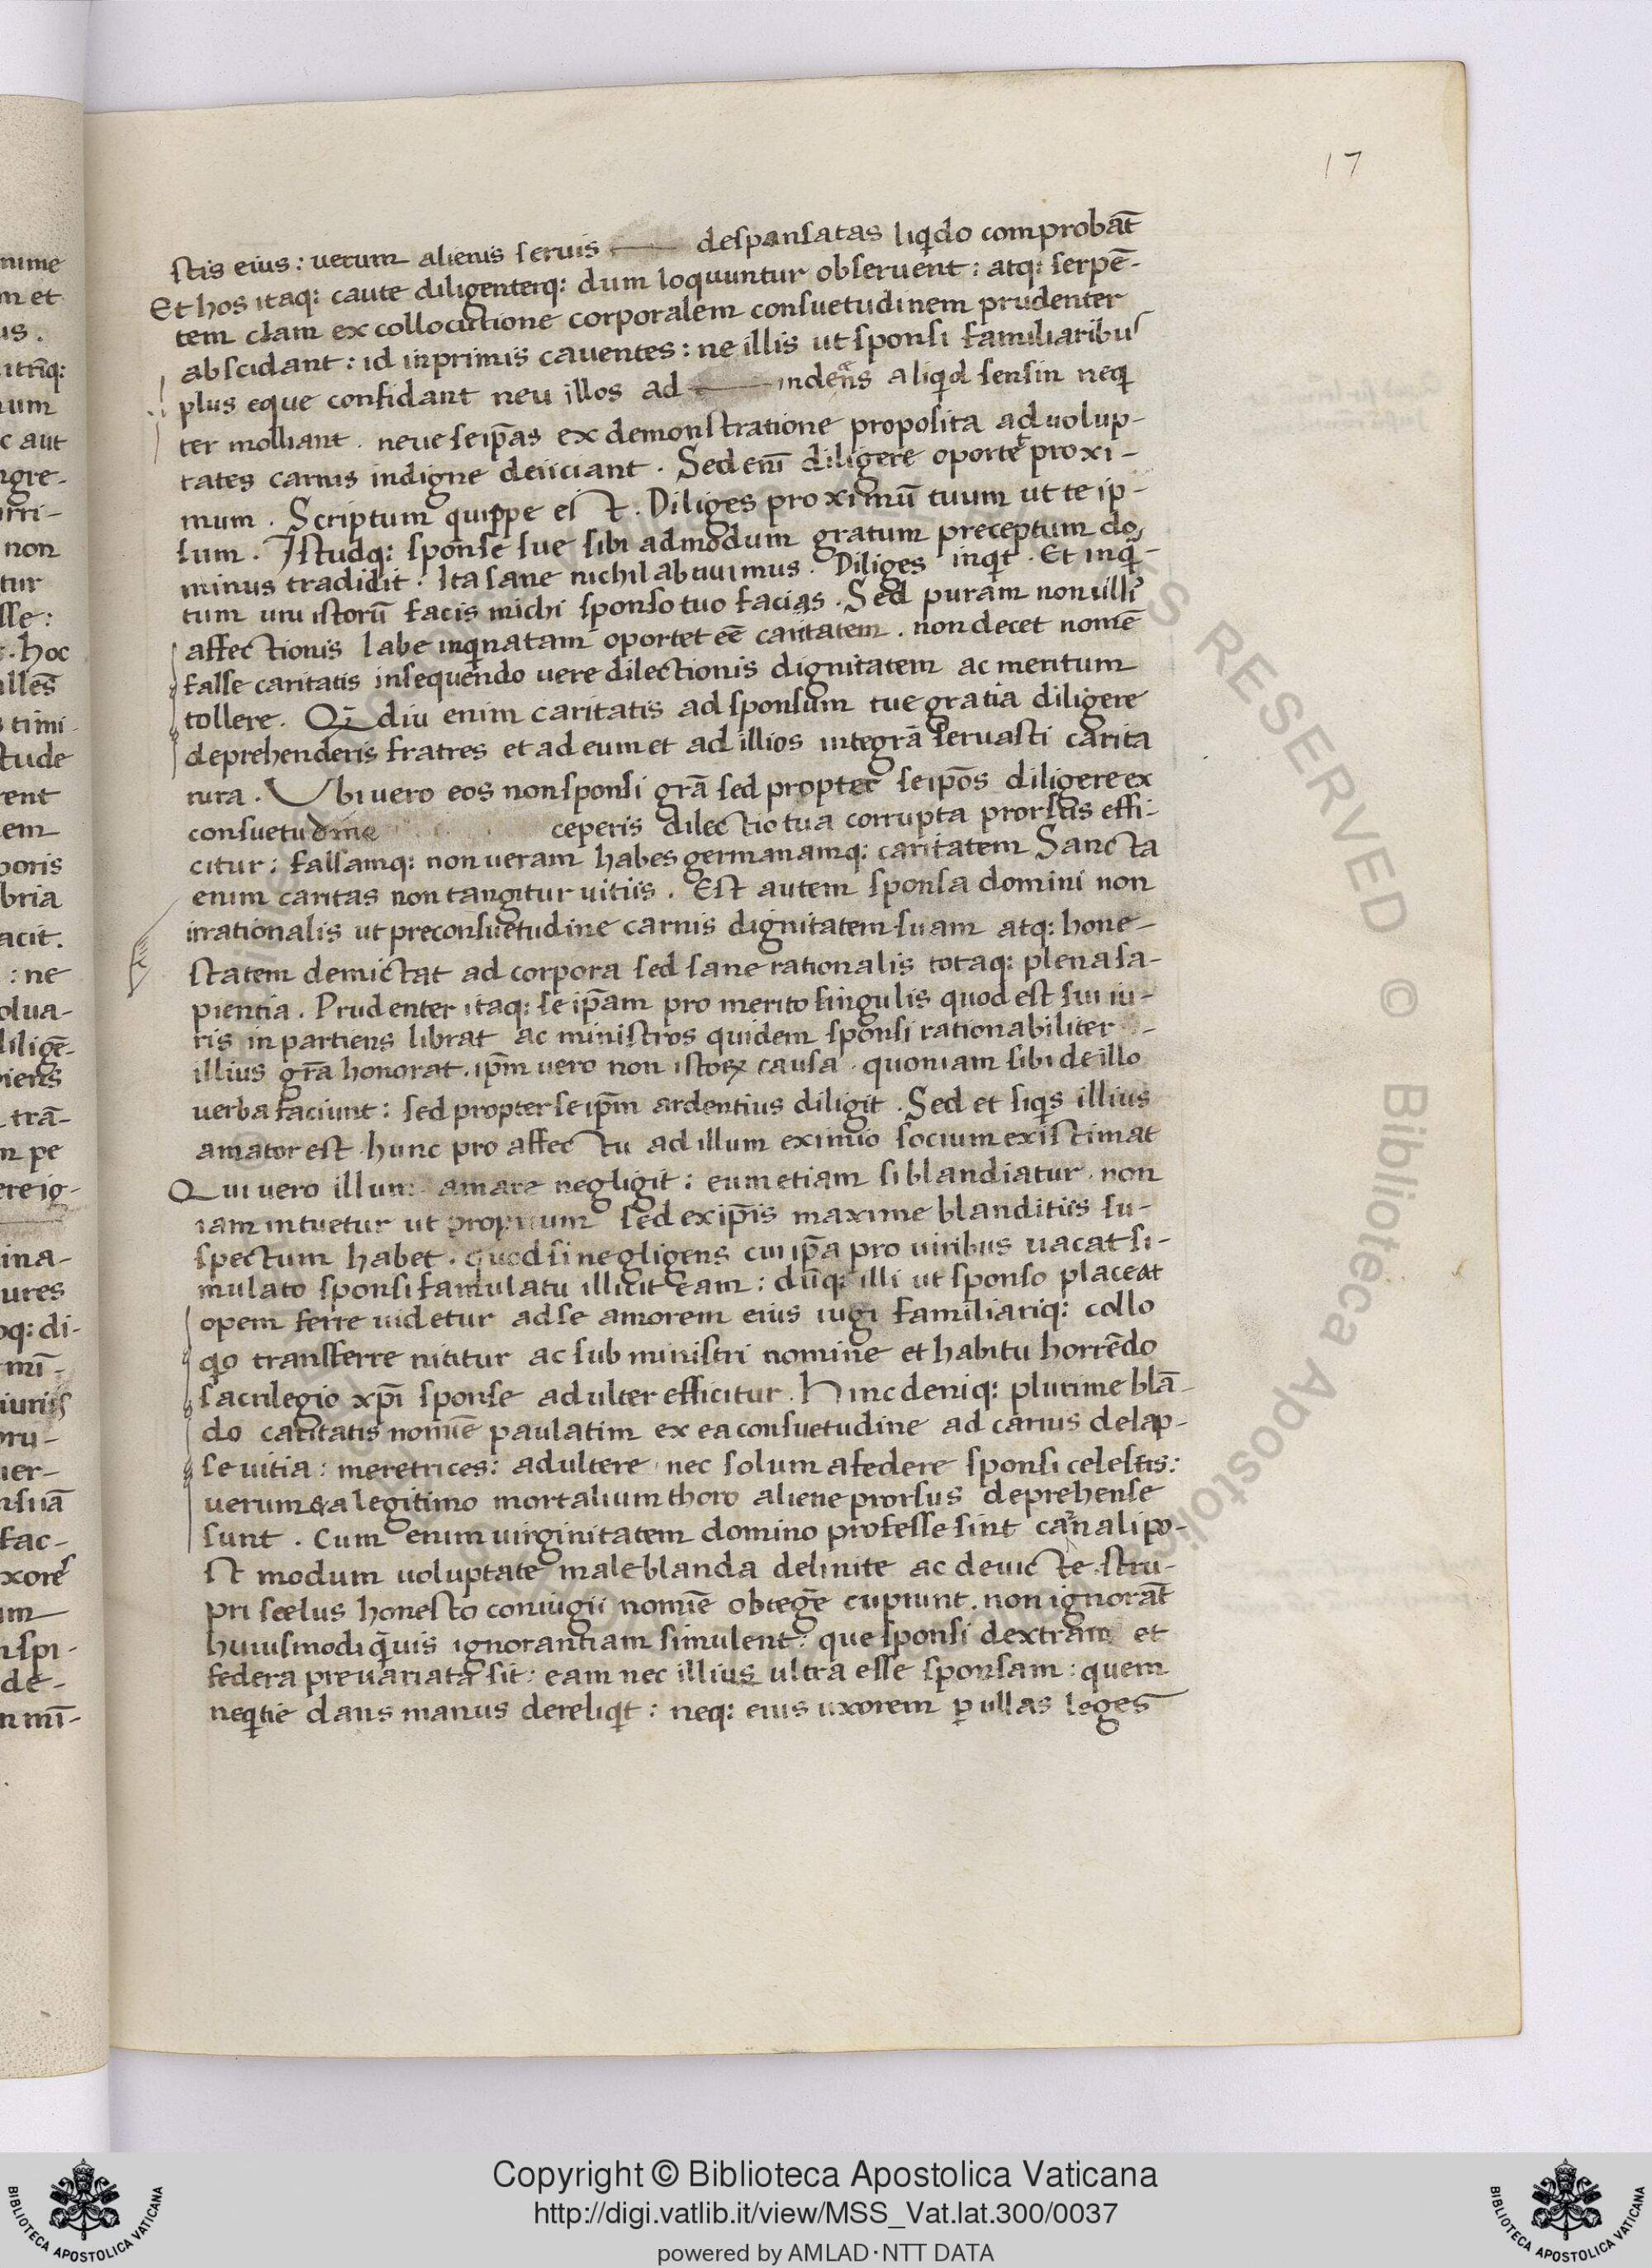 17
stis eius: uerum alienis seruis despansatas liqdo comprobāt
Et hos itaq: caute diligenterq: dum loquuntur obseruent: atq: serpē-
tem clam ex collocutione corporalem consuetudinem prudenter
abscidant: id inprimis cauentes: ne illis ut sponsi familiaribus
plus eque confidant neu illos ad indens aliqd sensin neq
ter molliant. neue seip̄as ex demonstratione proposita ad uolup-
tates carnis indigne deiiciant. Sed enī diligere oportet proxi-
mum. Scriptum quippe est. Diliges proximū tuum ut te ip-
sum. Istudq: sponse sue sibi admodum gratum preceptum do
minus tradidit. Ita sane nichil abtuimus. Diliges inqt. Et inq̄-
tum uni istorū facis michi sponso tuo facias. Sed puram non ulli
affectionis labe inqnatam oportet eē caritatem. non decet nomē
false caritatis insequendo uere dilectionis dignitatem ac meritum
tollere. Q̄diu enim caritatis ad sponsum tue gratia diligere
deprehenderis fratres et ad eum et ad illios integrā seruasti carita
tura. Ubi uero eos non sponsi grā sed propter seip̄os diligere ex
consuetudine ceperis dilectio tua corrupta prorsus effi-
citur: falsamq: non ueram habes germanamq: caritatem Sancta
enim caritas non tangitur uitiis. Est autem sponsa domini non
irrationalis ut preconsuetudine carnis dignitatem suam atq: hone-
statem demictat ad corpora sed sane rationalis totaq: plena sa-
pientia. Prudenter itaq: seip̄am pro merito singulis quod est sui iu-
ris inpartiens librat ac ministros quidem sponsi rationabiliter -
illius grā honorat. ip̄m uero non istoꝝ causa. quoniam sibi de illo
uerba faciunt: sed propter seip̄m ardentius diligit. Sed et siqs illius
amator est hunc pro affectu ad illum eximio socium existimat
Qui uero illum amare negligit: eum etiam si blandiatur. non
iam intuetur ut proprium sed ex ip̄is maxime blanditiis su-
spectum habet. quod si negligens cui ip̄a pro uiribus uacat si-
mulato sponsi famulatu illicit eam: dūq: illi ut sponso placeat
opem ferre uidetur ad se amorem eius iugi familiariq: collo
qo transferre nititur ac sub ministri nomine et habitu horrēdo
sacrilegio xp̄i sponse adulter efficitur. Hinc deniq: plurime blā-
do caritatis nomīe paulatim ex ea consuetudine ad carius delap-
se uitia: meretrices: adultere nec solum a federe sponsi celestis:
uerum & a legitimo mortalium thoro aliene prorsus deprehense
sunt. Cum enim uirginitatem domino professe sint carnali po-
st modum uoluptate male blanda delinite ac deuicte. stru-
pri scelus honesto coniugii nomīe obtegē cupiunt. non ignorāt
huiusmodi q̄uis ignorantiam simulent: que sponsi dextram et
federa preuariata sit: eam nec illius ultra esse sponsam: quem
neqtie dans manus dereliqt: neq: eius uxorem ꝑ ullas leges
Copyright © Biblioteca Apostolica Vaticana
http://digi.vatlib.it/view/MSS_Vat.lat.300/0037
powered by AMLAD·NTT DATA
BIBLIOTECA APOSTOLICA VATICANA
BIBLIOTECA APOSTOLICA VATICANA